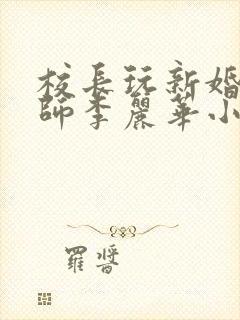 校長玩新婚
師李麗華小
羅醬